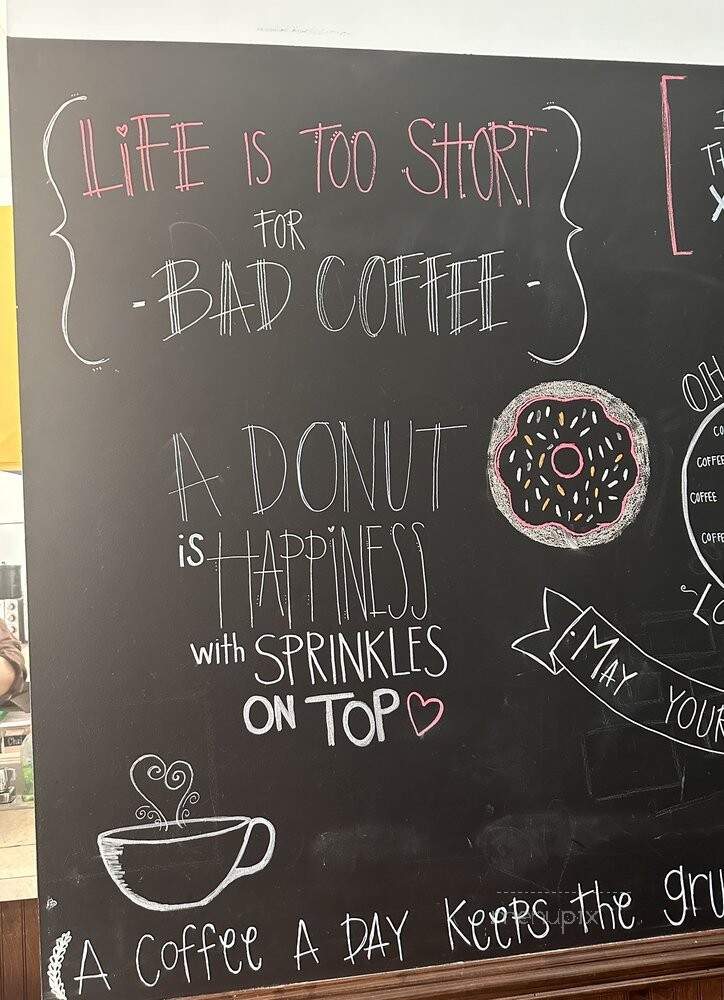 LiFE IS TOO SHORT
FOR
- BAD COFFEE -
A DONUT
is HAPPiNESS
with SPRINKLES
ON TOP
OH
COFFEE
COFFEE
MAY YOUR
A Coffee A DAY Keeps the gru
menupix